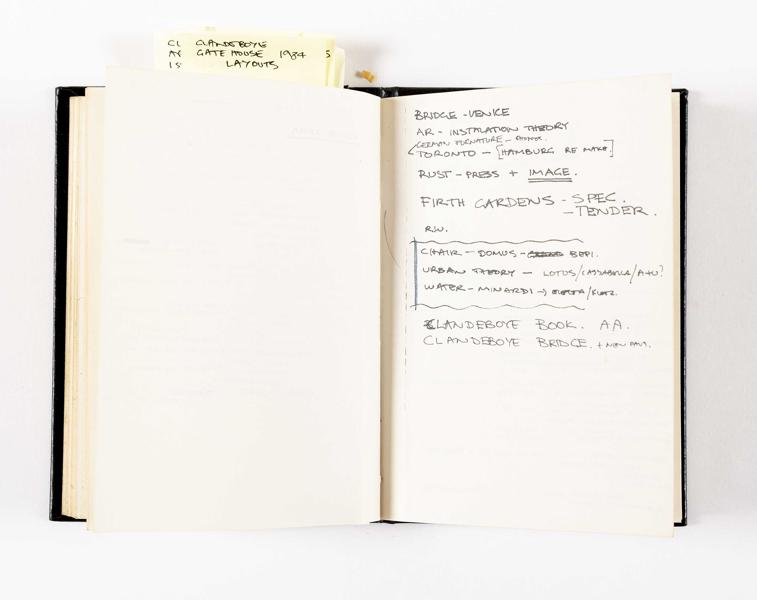 CL CLANDEBOYE
AY GATE HOUSE 1984 S
IS LAYOUTS
BRIDGE - VENICE
AR - INSTALATION THEORY
GERMAN FURNATURE -
TORONTO - [HAMBURG RE MAKE]
RUST - PRESS + IMAGE.
FIRTH GARDENS - SPEC.
- TENDER.
R.W.
CHAIR - DOMUS - BEPI.
URBAN THEORY - LOTUS/CASSABELLA/A+U?
WATER - MINARDI →
CLANDEBOYE BOOK. AA.
CLANDEBOYE BRIDGE. + NEW